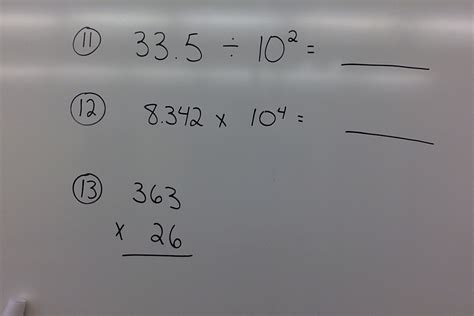 11 33.5 ÷ 10² = ____
12 8.342 x 10⁴ = ____
13 363
x 26